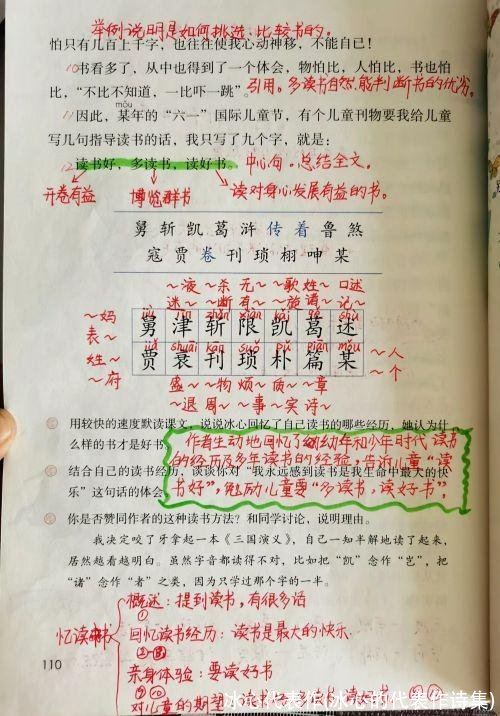 举例说明是如何挑选、比较书的。
怕只有几百上千字，也往往使我心动神移，不能自已！
10书看多了，从中也得到了一个体会，物怕比，人怕比，书也怕
比，“不比不知道，一比吓一跳”。
引用。多读书自然能判断书的优劣。
mǒu
11因此，某年的“六一”国际儿童节，有个儿童刊物要我给儿童
写几句指导读书的话，我只写了九个字，就是：
12读书好，多读书，读好书。
中心句。总结全文。
开卷有益 博览群书 读对身心发展有益的书。
舅 斩 凯 葛 浒 传 着 鲁 煞
寇 贾 卷 刊 琐 栩 呻 某
～液 ～杀 无～ ～歌 姓～ 口述
～妈 迷～ ～断 有～ ～旋 诸～ 记～
jiù jīn zhǎn xiàn kǎi gě shù
表～ 舅 津 斩 限 凯 葛 述
jiǎ shuāi kān suǒ pǔ piān mǒu
姓～ 贾 衰 刊 琐 朴 篇 某 ～人
～府 盛～ ～物 烦～ 质～ ～章 ～个
～退 周～ ～事 ～实 诗～
用较快的速度默读课文，说说冰心回忆了自己读书的哪些经历，她认为什
么样的书才是好书
作者生动地回忆了幼年和少年时代读书
的经历及多年读书的经验，告诉儿童“读
书好”，勉励儿童要“多读书，读好书”。
结合自己的读书经历，谈谈你对“我永远感到读书是我生命中最大的快
乐”这句话的体会
你是否赞同作者的这种读书方法？和同学讨论，说明理由。
我决定咬了牙拿起一本《三国演义》，自己一知半解地读了起来，
居然越看越明白。虽然字音都读得不对，比如把“凯”念作“岂”，把
“诸”念作“者”之类，因为只学过那个字的一半。
概述：提到读书，有很多话
①
忆读书 回忆读书经历：读书是最大的快乐
亲身体验：要读好书
110
对儿童的期望
冰心代表作(冰心的代表作诗集)